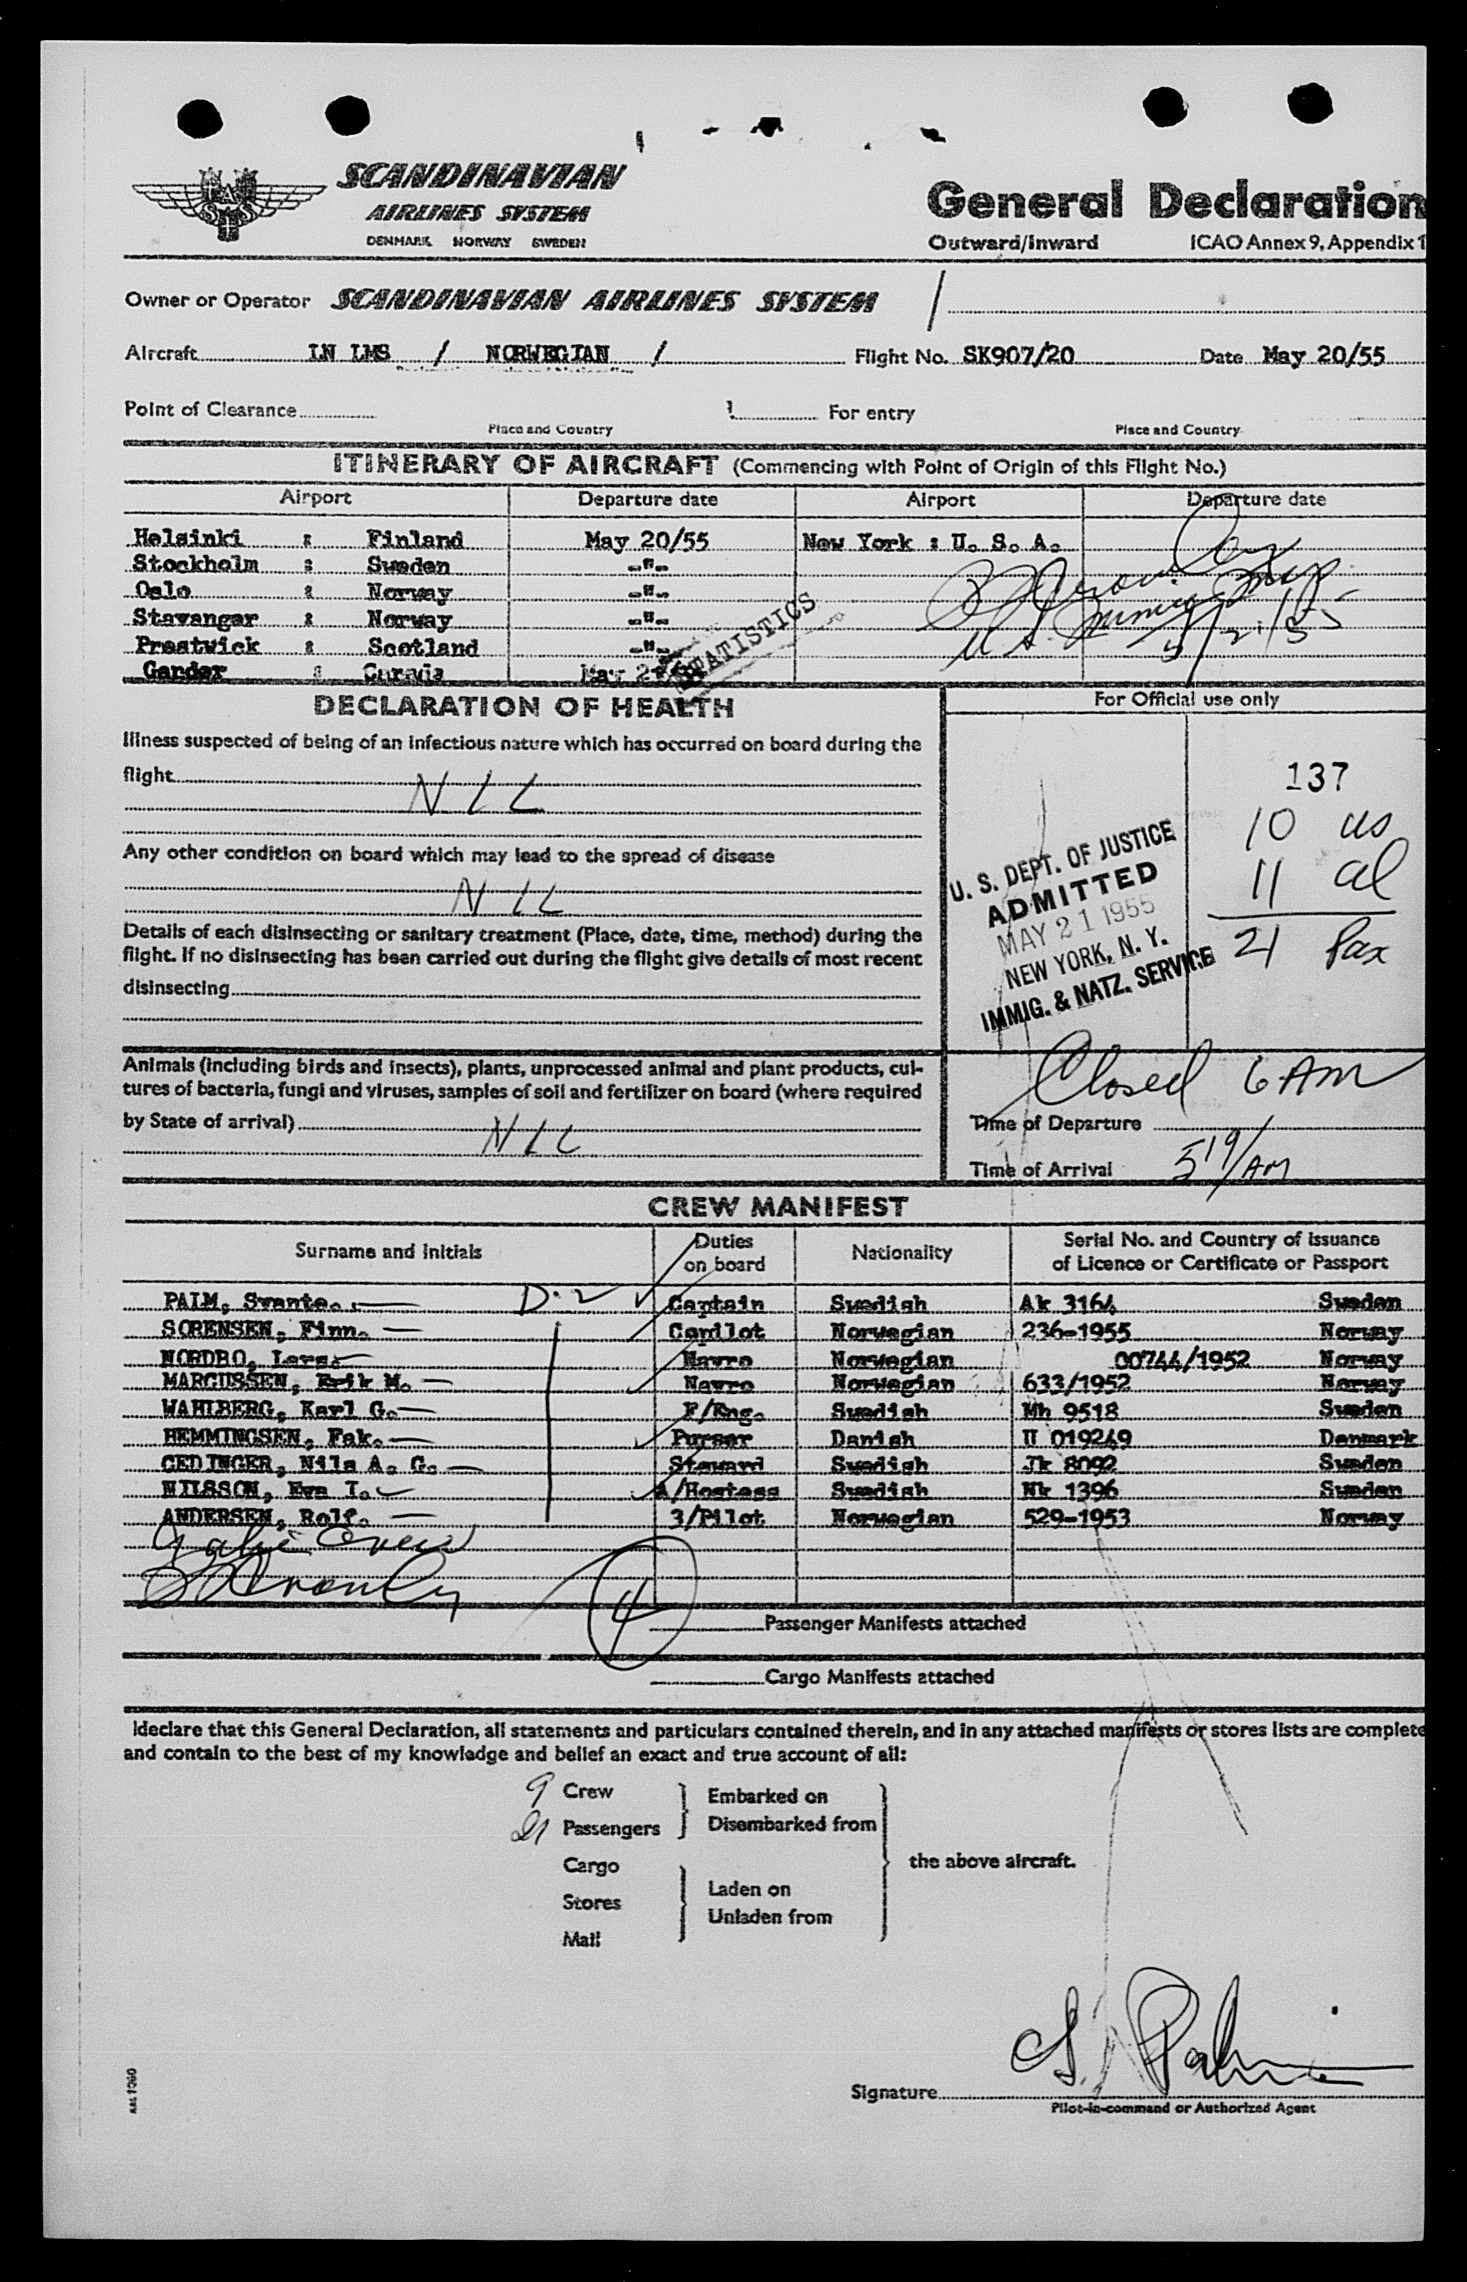 SCANDINAVIAN
AIRLINES SYSTEM
DENMARK NORWAY SWEDEN
General Declaration
Outward/Inward ICAO Annex 9, Appendix 1
Owner or Operator SCANDINAVIAN AIRLINES SYSTEM /
Aircraft LN LMS / NORWEGIAN / Flight No. SK907/20 Date May 20/55
Point of Clearance For entry
Place and Country Place and Country
ITINERARY OF AIRCRAFT (Commencing with Point of Origin of this Flight No.)
Airport Departure date Airport Departure date
Helsinki : Finland May 20/55 New York : U. S. A.
Stockholm : Sweden -"-
Oslo : Norway -"-
Stavanger : Norway -"-
Prestwick : Scotland -"-
Gander :
STATISTICS
5/21/55
DECLARATION OF HEALTH
For Official use only
Illness suspected of being of an infectious nature which has occurred on board during the
flight NIL
Any other condition on board which may lead to the spread of disease
NIL
Details of each disinsecting or sanitary treatment (Place, date, time, method) during the
flight. If no disinsecting has been carried out during the flight give details of most recent
disinsecting
137
10 us
11 al
21 Pax
U. S. DEPT. OF JUSTICE
ADMITTED
MAY 21 1955
NEW YORK, N. Y.
IMMIG. & NATZ. SERVICE
Animals (including birds and insects), plants, unprocessed animal and plant products, cul-
tures of bacteria, fungi and viruses, samples of soil and fertilizer on board (where required
by State of arrival) NIL
Closed 6 AM
Time of Departure
Time of Arrival 519/AM
CREW MANIFEST
Surname and initials Duties on board Nationality Serial No. and Country of issuance of Licence or Certificate or Passport
PALM, Svante. D-2 Captain Swedish Ak 3164 Sweden
SORENSEN, Finn. Copilot Norwegian 236-1955 Norway
NORDBO, Lars. Navro Norwegian 00744/1952 Norway
MARCUSSEN, Erik M. Navro Norwegian 633/1952 Norway
WAHLBERG, Karl G. F/Eng. Swedish Mh 9518 Sweden
HEMMINGSEN, Fak. Purser Danish U 019249 Denmark
CEDINGER, Nils A. G. Steward Swedish Jk 8092 Sweden
NILSSON, Eva I. A/Hostess Swedish Nk 1396 Sweden
ANDERSEN, Rolf. 3/Pilot Norwegian 529-1953 Norway
4 Passenger Manifests attached
Cargo Manifests attached
I declare that this General Declaration, all statements and particulars contained therein, and in any attached manifests or stores lists are complete
and contain to the best of my knowledge and belief an exact and true account of all:
9 Crew
21 Passengers
Embarked on
Disembarked from
Cargo
Stores
Mail
Laden on
Unladen from
the above aircraft.
Signature
Pilot-in-command or Authorized Agent